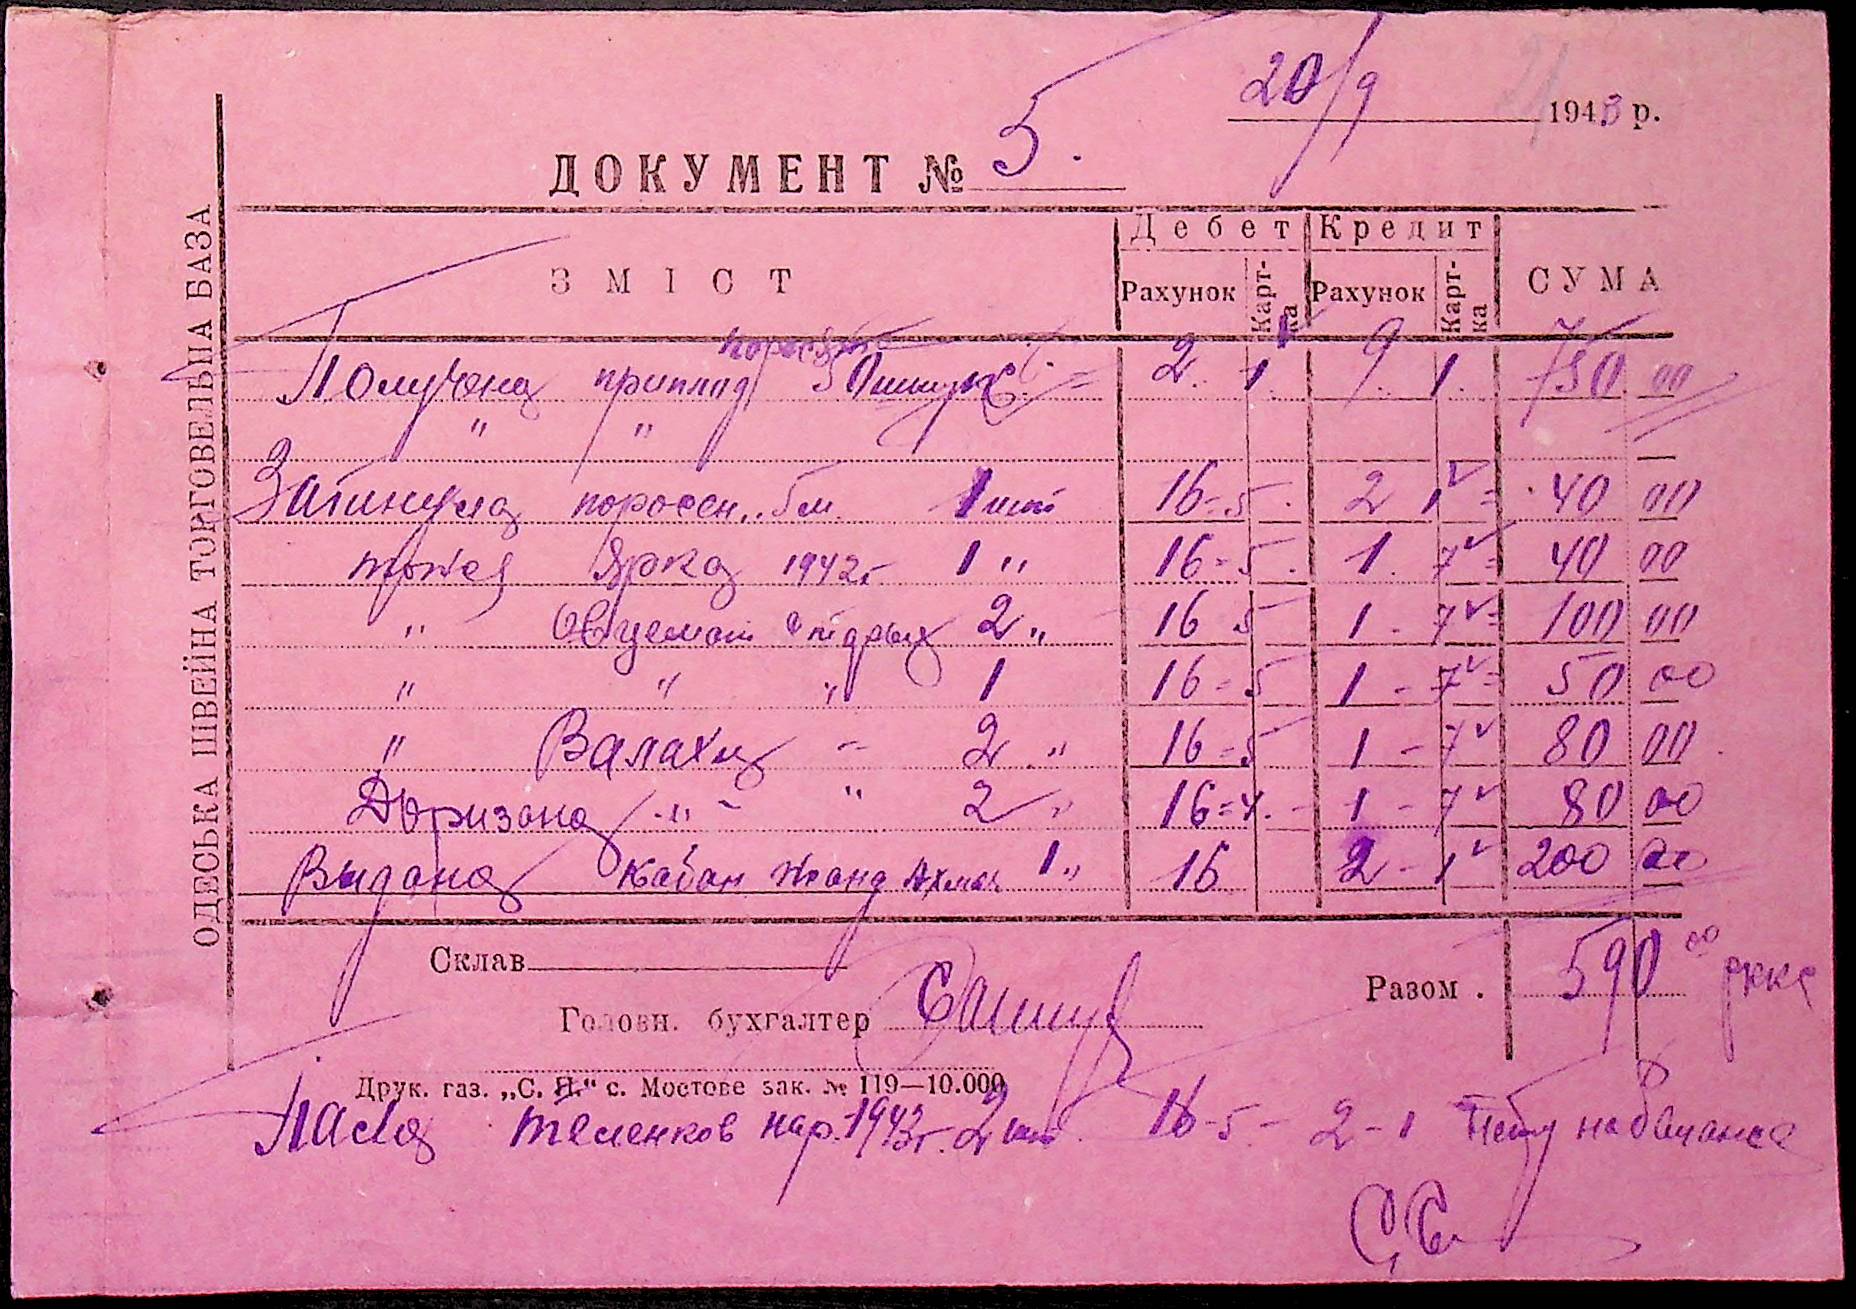 20/9 1943 р.
ДОКУМЕНТ № 5.
ОДЕСЬКА ШВЕЙНА ТОРГОВЕЛЬНА БАЗА
ЗМІСТ Дебет Кредит СУМА
Рахунок Карт-ка Рахунок Карт-ка
Получена приплод 50 штук 2. 1. 9. 1. 750 00
" "
Загинула поросен.. 5м. 1 шт 16-5. 2 1 40 00
тоже Ярка 1942г 1 " 16-5. 1. 7 40 00
" Овцемат 2 " 16 5 1 - 7 100 00
" " " 1 16-5 1 - 7 50 00
" Валахи - 2 " 16-5 1 - 7 80 00
Доризана " - " 2 " 16-4. - 1 - 7 80 00
Выдана кабан 1 " 16 2 - 1 200 00
Склав
Разом . 590 00
Головн. бухгалтер
Друк. газ. „С. Н." с. Мостове зак. № 119—10.000
Пала теленков нар. 1943г. 2 шт 16-5- 2-1 нету на балансе